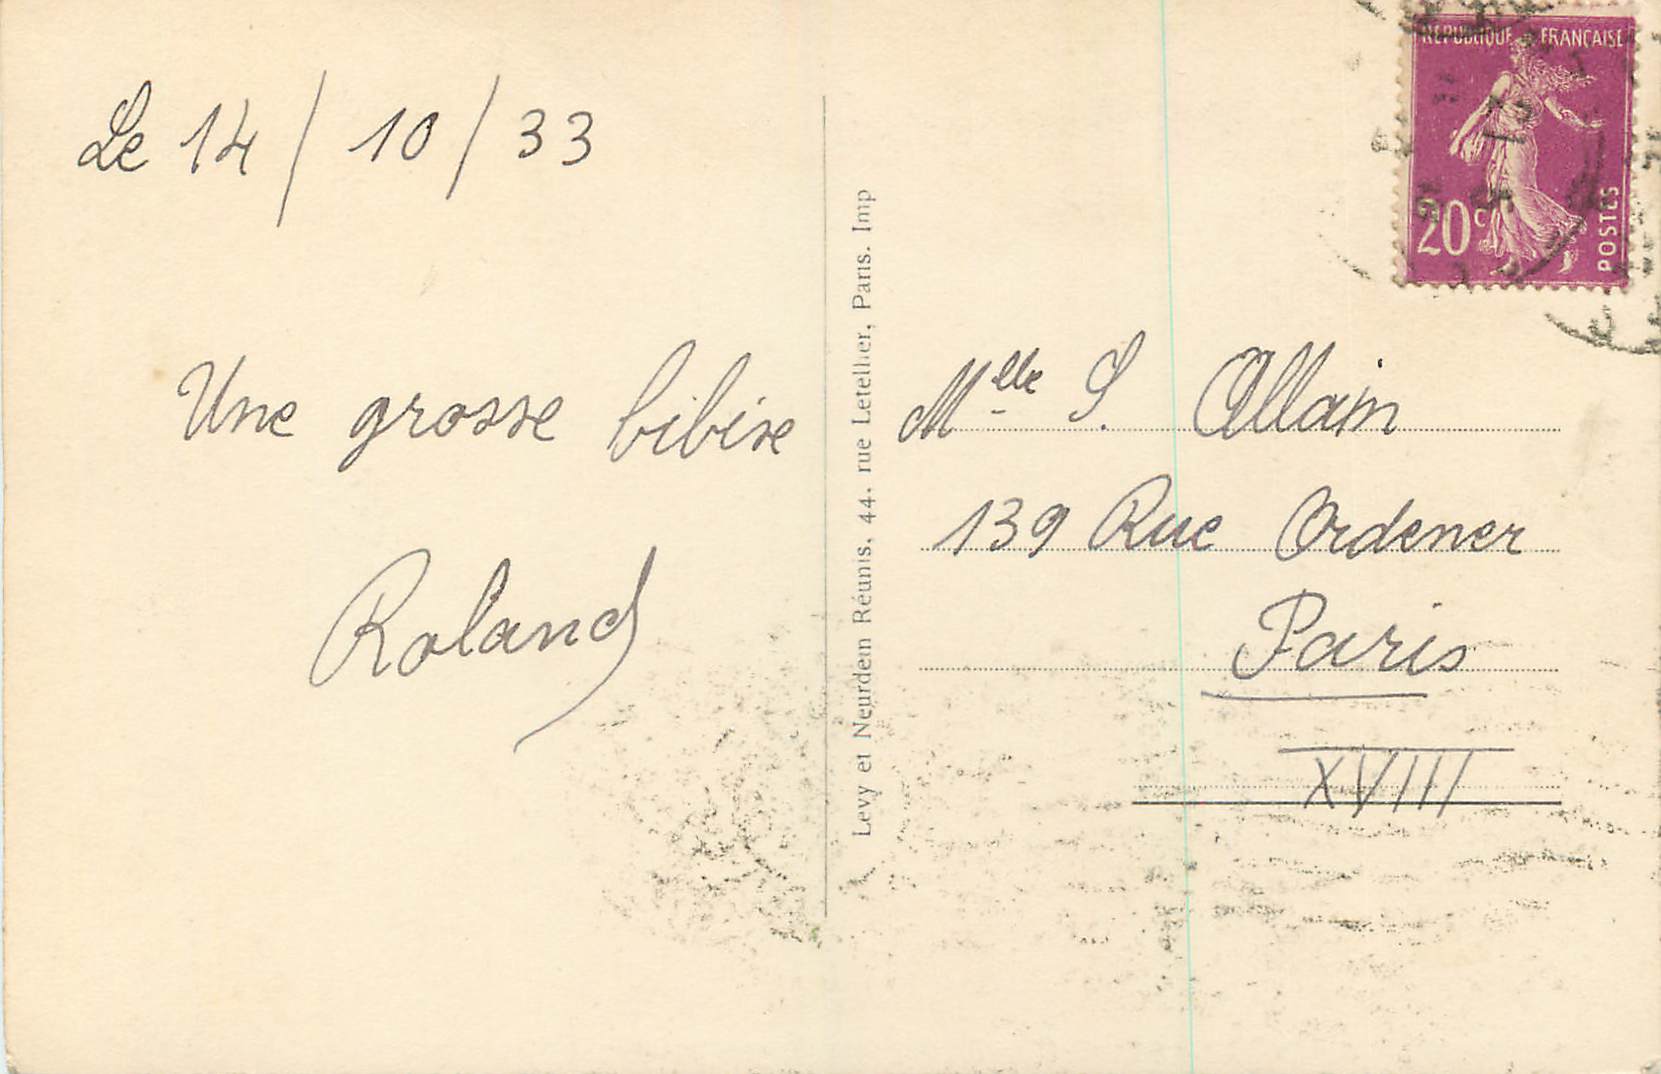 Le 14/10/33
Une grosse bibise
Roland
Levy et Neurdein Réunis, 44, rue Letellier, Paris. Imp
RÉPUBLIQUE FRANÇAISE
20c
POSTES
Mlle S. Allain
139 Rue Ordener
Paris
XVIII